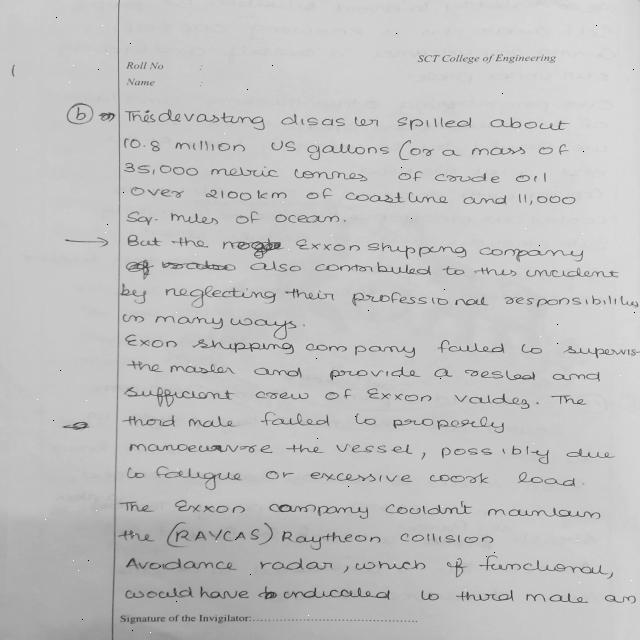 SCT College of Engineering
Roll No :
Name :
(b) This devasting disaster spilled about
10.8 million US gallons (or a mass of
35,000 metric tonnes of crude oil
over 2100 km of coastline and 11,000
Sq. miles of ocean.
→ But the Exxon shipping company
also contributed to this incident
by neglecting their professional responsibilities
in many ways.
Exon shipping company failed to supervis
the master and provide a rested and
sufficient crew of Exxon valdez. The
third mate failed to properly
manoeuvre the vessel, possibly due
to fatigue or excessive work load.
The Exxon company couldn't maintain
the (RAYCAS) Raytheon collision
Avoidance radar, which if functional,
would have indicated to third mate an
Signature of the Invigilator: